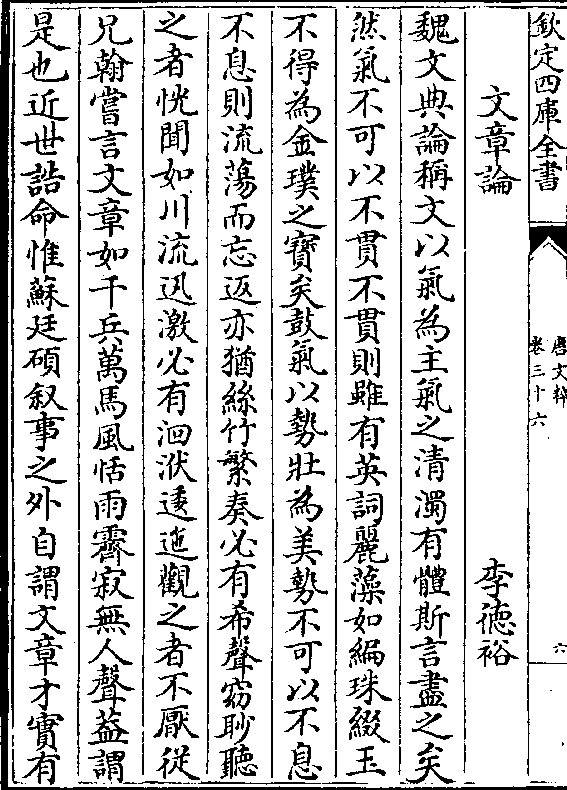 欽定四庫全書
唐文粹
卷三十六
六
文章論
李德裕
魏文典論稱文以氣為主氣之清濁有體斯言盡之矣
然氣不可以不貫不貫則雖有英詞麗藻如編珠綴玉
不得為金璞之寶矣鼓氣以勢壯為美勢不可以不息
不息則流蕩而忘返亦猶絲竹繁奏必有希聲窈眇聽
之者恱聞如川流迅激必有洄洑逶迤觀之者不厭從
兄翰嘗言文章如千兵萬馬風恬雨霽寂無人聲葢謂
是也近世誥命惟蘇廷碩叙事之外自謂文章才實有